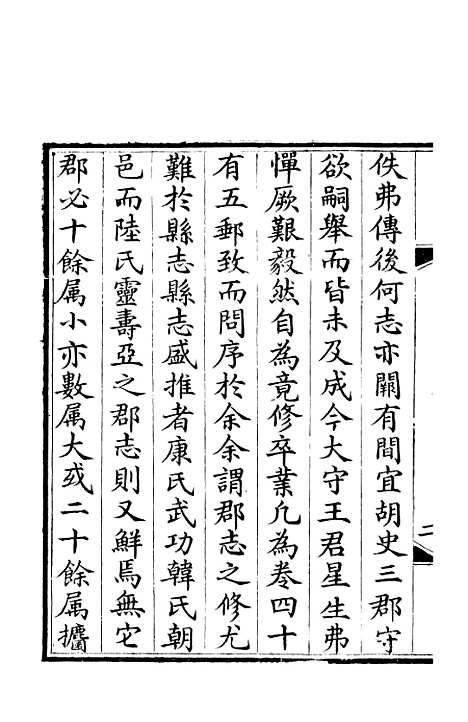 佚弗傳後何志亦闕有間宜胡史三郡守
欲嗣舉而皆未及成今大守王君星生弗
憚厥艱毅然自為竟修卒業凢為卷四十
有五郵致而問序於余余謂郡志之修尤
難於縣志縣志盛推者康氏武功韓氏朝
邑而陸氏靈壽亞之郡志則又鮮焉無它
郡必十餘属小亦數属大或二十餘属攟
二